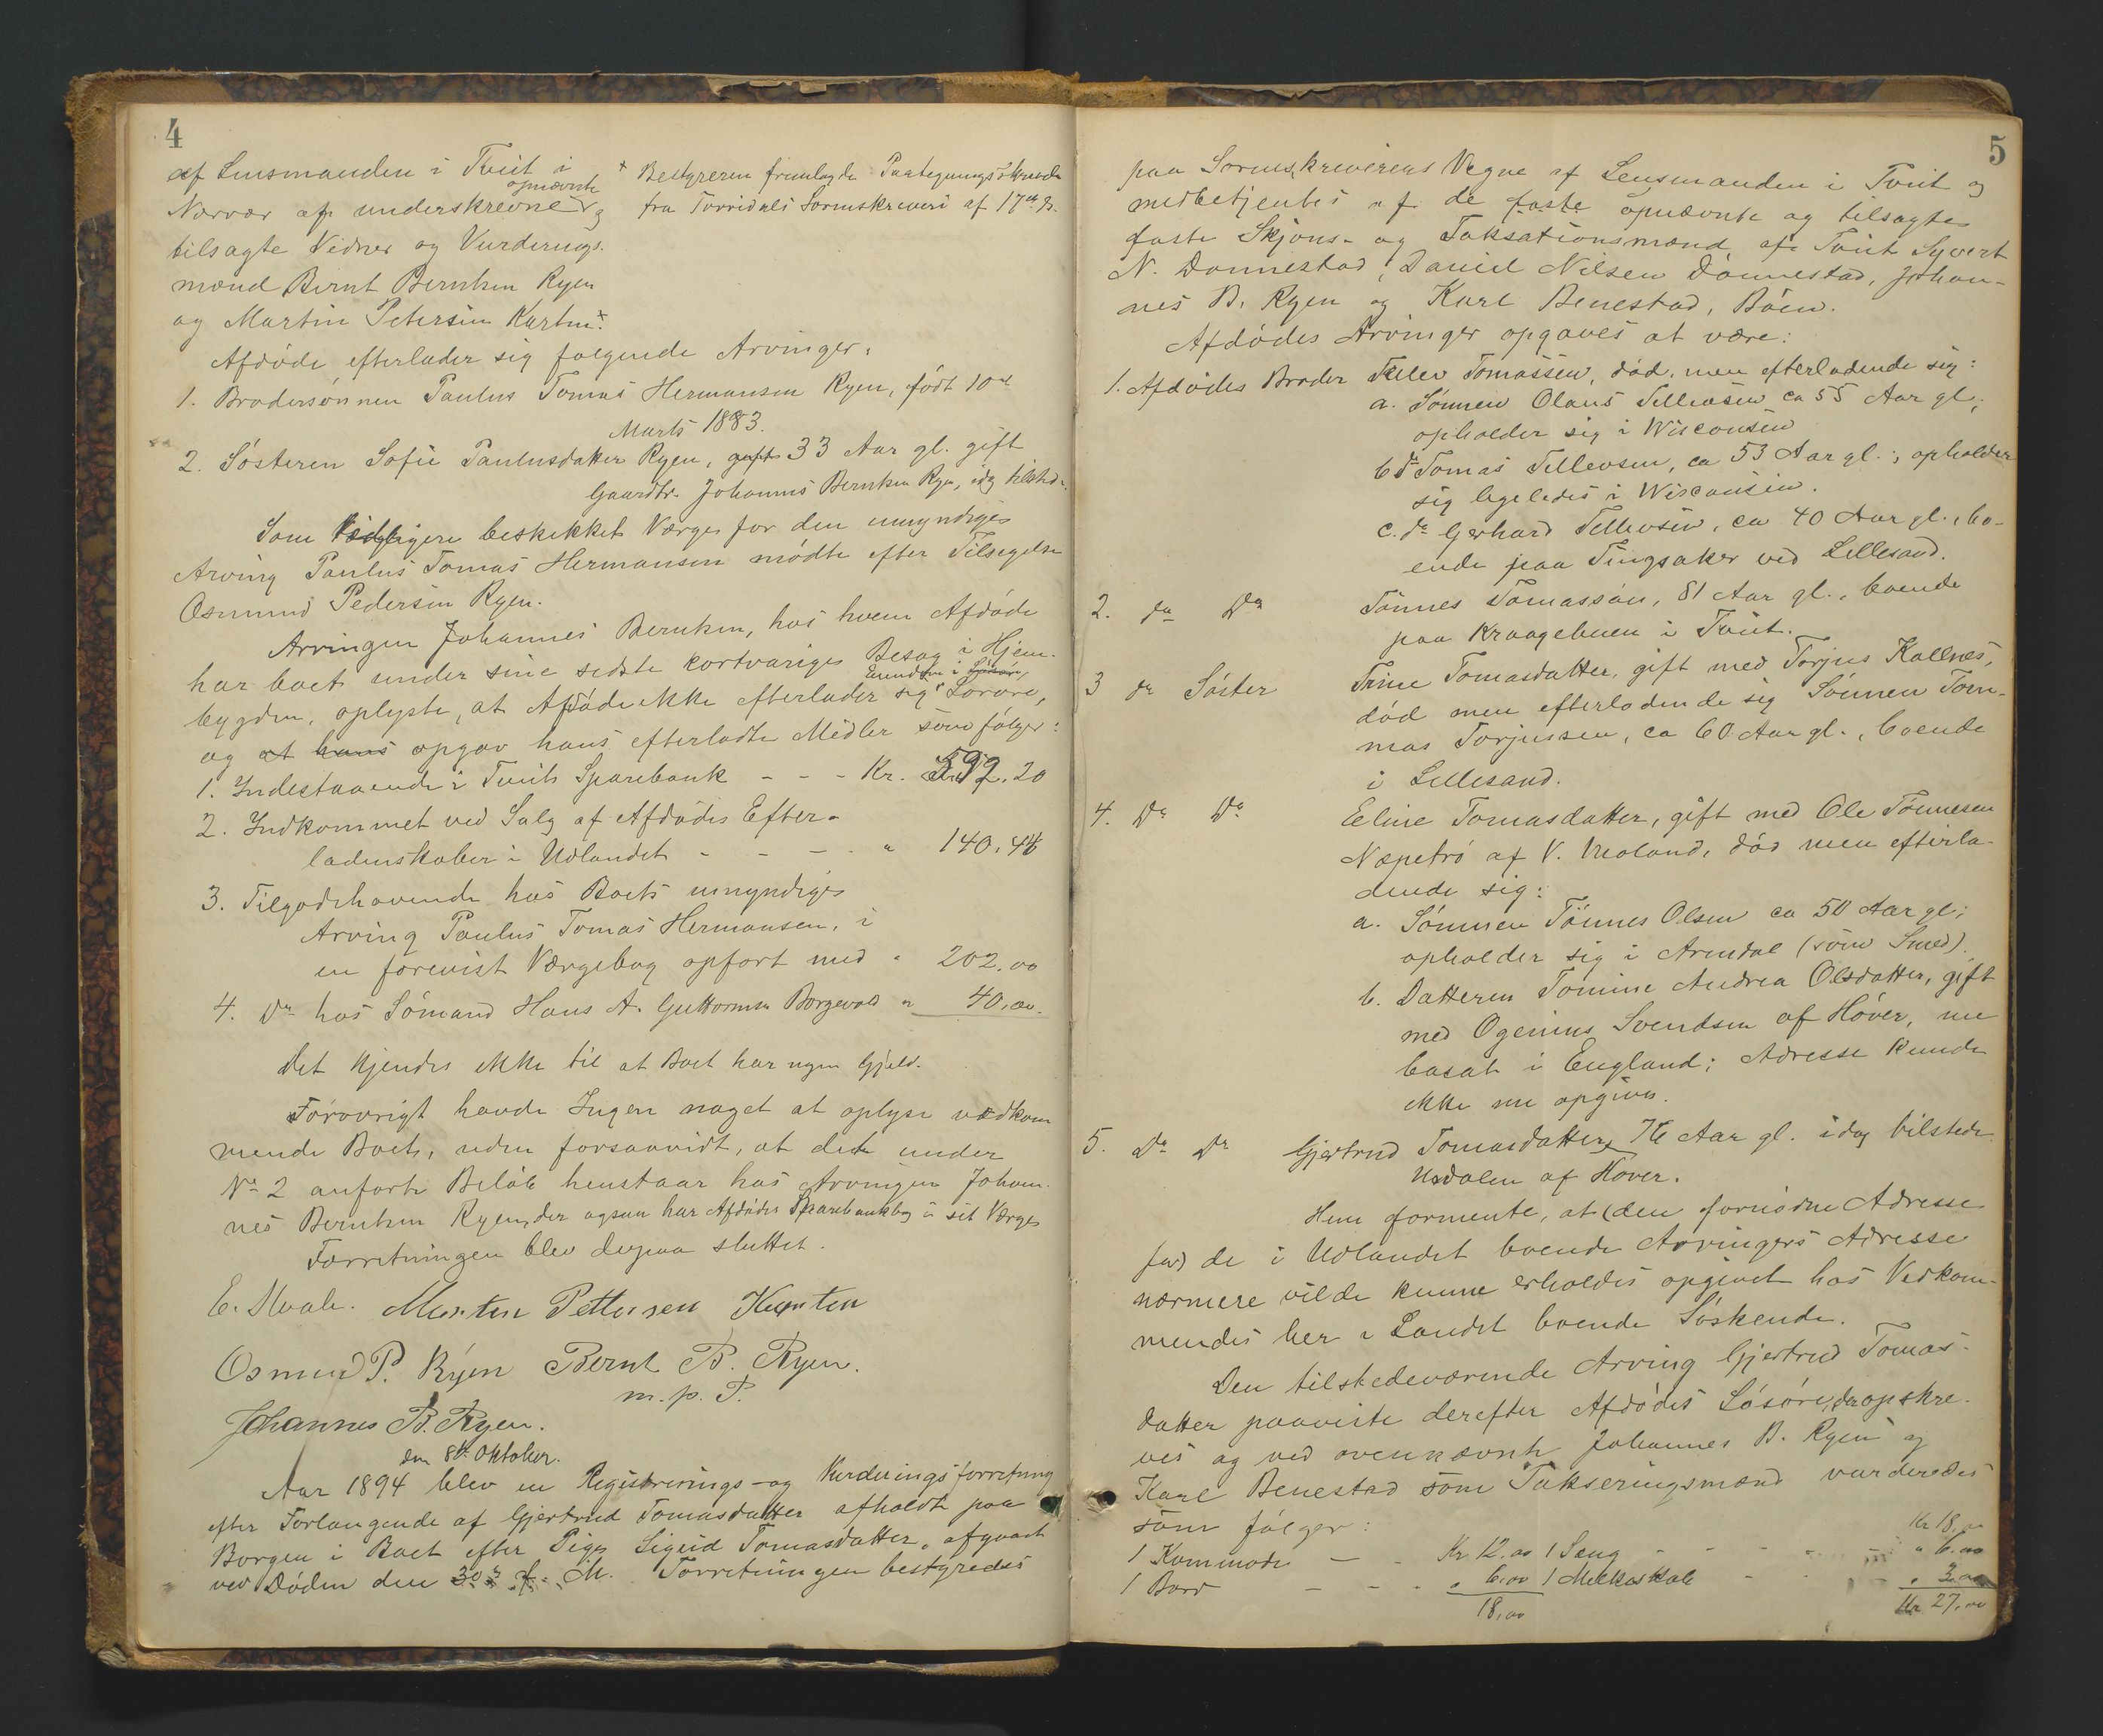 4
af Lensmanden i Tveit i
Nærvær af underskrevne opnævnte og
tilsagte Vidner og Vurderings-
mænd Bernt Berntsen Ryen
og Martin Petersen Karten. ×
× Bestyreren fremlagde Paategningsskrivelse
fra Torridals Sorenskriveri af 17de ds.
Afdøde efterlader sig følgende Arvinger:
1. Brodersønnen Paulus Tomas Hermansen Ryen, født 10de
Marts 1883.
2. Søsteren Sofie Paulusdatter Ryen, gift 33 Aar gl. gift
Gaardbr. Johannes Berntsen Ryen, idag tilstede.
Som beskikket Værge for den umyndige
Arving Paulus Tomas Hermansen mødte efter Tilsigelse
Osmund Pedersen Ryen.
Arvingen Johannes Berntsen, hos hvem Afdøde
har boet under sine sidste kortvarige Besøg i Hjem-
bygden, oplyste, at Afdøde ikke efterlader sig Eiendom i Løsøre,
og at hans opgav hans efterladte Midler som følger:
1. Indestaaende i Tveits Sparebank - - - Kr. 592.20
2. Indkommet ved Salg af Afdødes Efter-
ladenskaber i Udlandet - - - " 140,44
3. Tilgodehavende hos Boets umyndige
Arving Paulus Tomas Hermansen, i
en forevist Værgebog opført med " 202,00
4. Do hos Sømand Hans A. Guttormsen Borgevold " 40,00.
Det kjendes ikke til at Boet har nogen Gjæld.
Forøvrigt havde Ingen noget at oplyse vedkom
mende Boet, uden forsaavidt, at det under
No 2 anførte Beløb henstaar hos Arvingen Johan-
nes Berntsen Ryen, der ogsaa har Afdødes Sparebankbog i sit Værge
Forretningen blev derpaa sluttet.
E. Hvale. Martin Pettersen Karten
Osmund P. Ryen Bernt B. Ryen.
m. p. P.
Johannes B. Ryen.
den 8de Oktober.
Aar 1894 blev en Registrerings- og Vurderingsforretning
efter Forlangende af Gjertrud Tomasdatter afholdt paa
Borgen i Boet efter Pige Sigrid Tomasdatter, afgaaet
ved Døden den 30de f. M. Forretningen bestyredes
5
paa Sorenskriverens Vegne af Lensmanden i Tveit og
medbetjentes af de faste opnævnte og tilsagte
faste Skjøns- og Taksationsmænd af Tveit Syvert
N. Dønnestad, Daniel Nilsen Dønnestad, Johan-
nes B. Ryen og Karl Benestad, Bøen.
Afdødes Arvinger opgaves at være:
1. Afdødes Broder Tellev Tomassen, død, men efterladende sig:
a. Sønnen Olaus Tellevsen ca 55 Aar gl.,
opholder sig i Wisconsin
b. do Tomas Tellevsen, ca 53 Aar gl., opholder
sig ligeledes i Wisconsin.
c. do Gerhard Tellevsen, ca 40 Aar gl., bo-
ende paa Tingsaker ved Lillesand.
2. do Do Tønnes Tomassøn, 81 Aar gl., boende
paa Kraagebuen i Tveit.
3 do Søster Trine Tomasdatter, gift med Torjus Kallnes,
død men efterladende sig Sønnen Tom-
mas Torjussen, ca 60 Aar gl., boende
i Lillesand.
4. Do Do Eline Tomasdatter, gift med Ole Tønnesen
Næpetrø af V. Moland, død men efterla-
dende sig:
a. Sønnen Tønnes Olsen ca 50 Aar gl.;
opholder sig i Arendal (som Smed).
b. Datteren Tomine Andrea Olsdatter, gift
med Ogenius Svendsen af Høver, nu
bosat i England; Adresse kunde
ikke nu opgives.
5. Do Do Gjertrud Tomasdatter, 76 Aar gl. idag tilstede
Usdalen af Høver.
Hun formente, at (den fornødne Adresse
for) de i Udlandet boende Arvingers Adresse
nærmere vilde kunne erholdes opgivet hos Vedkom-
mendes her i Landet boende Søskende.
Den tilstedeværende Arving Gjertrud Tomas-
datter paaviste derefter Afdødes Løsøre, der opskre-
ves og ved ovennævnte Johannes B. Ryen og
Karl Benestad som Takseringsmænd vurderedes
som følger:
Kr 18,00
1 Kommode - - Kr. 12.00 1 Seng - - - - " 6.00
1 Bord - - - " 6,00 1 Melkeskab - - - " 3.00
18,00 Kr. 27,00